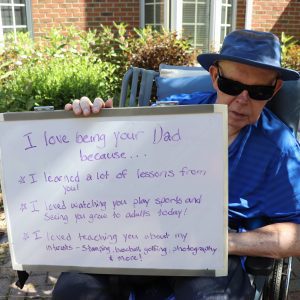 I love being your Dad
because...
* I learned a lot of lessons from
you!
* I loved watching you play sports and
seeing you grow to adults today!
* I loved teaching you about my
intrests - Stamping, baseball, golfing, photography
& more!